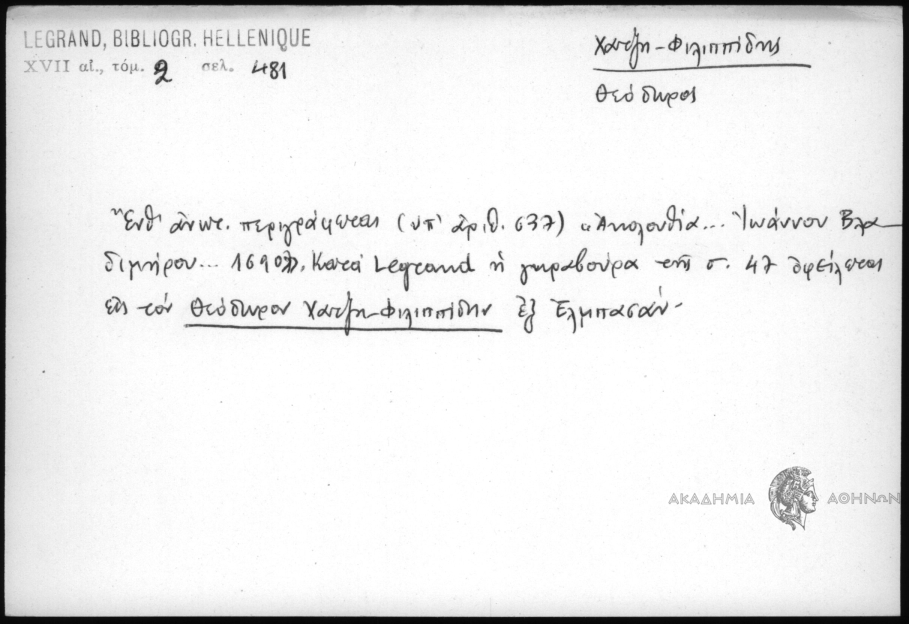 LEGRAND, BIBLIOGR. HELLENIQUE
XVII αἰ., τόμ. 2 σελ. 481
Χατζη-Φιλιππίδης
Θεόδωρος
Ἔνθ' ἀνωτ. περιγράφεται (ὑπ' ἀριθ. 637) «Ἀκολουθία... Ἰωάννου Βλα
διμήρου... 1690». Κατά Legrand ἡ γκραβούρα τῆς σ. 47 ὀφείλεται
εἰς τόν Θεόδωρον Χατζη-Φιλιππίδην ἐξ Ἐλμπασάν.
ΑΚΑΔΗΜΙΑ ΑΘΗΝΩΝ